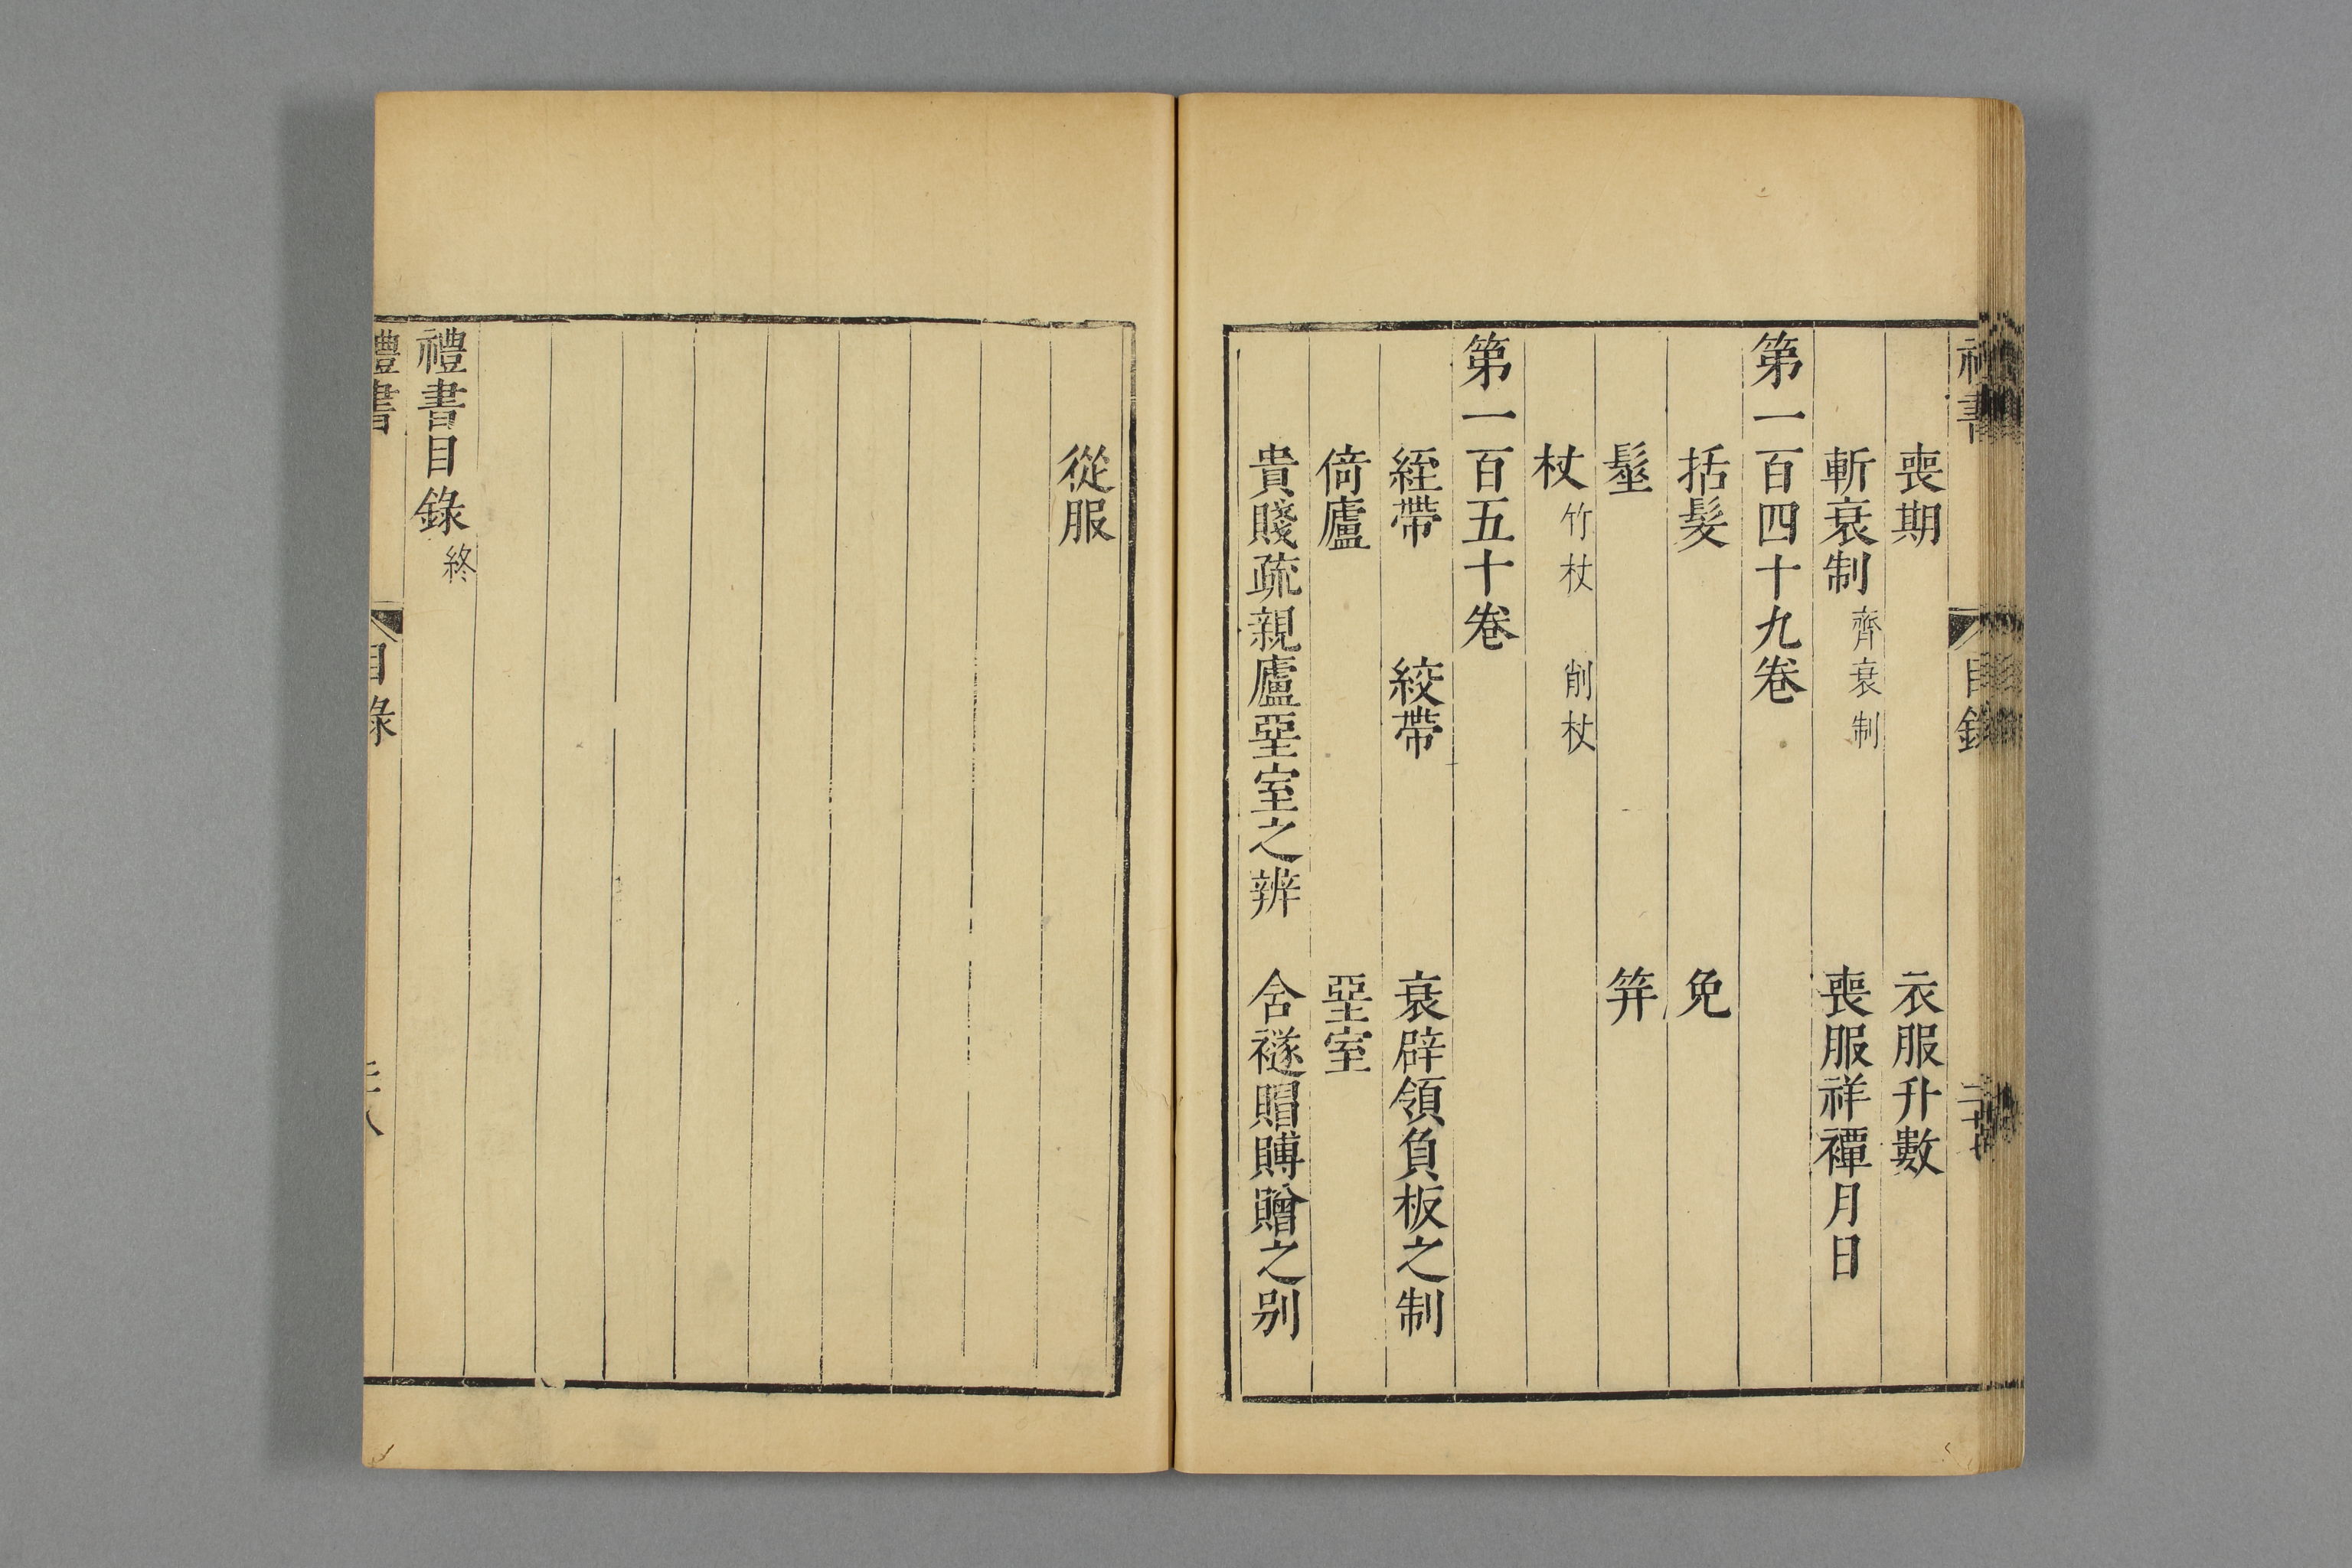 喪期　衣服升數
斬衰制　齊衰制　喪服祥禫月日
第一百四十九卷
括髮　免
髽　笄
杖　竹杖　削杖
第一百五十卷
絰帶　絞帶　衰辟領負板之制
倚廬　堊室
貴賤疏親廬堊室之辨　含襚賵賻贈之別
從服
禮書目錄終
禮書　目錄